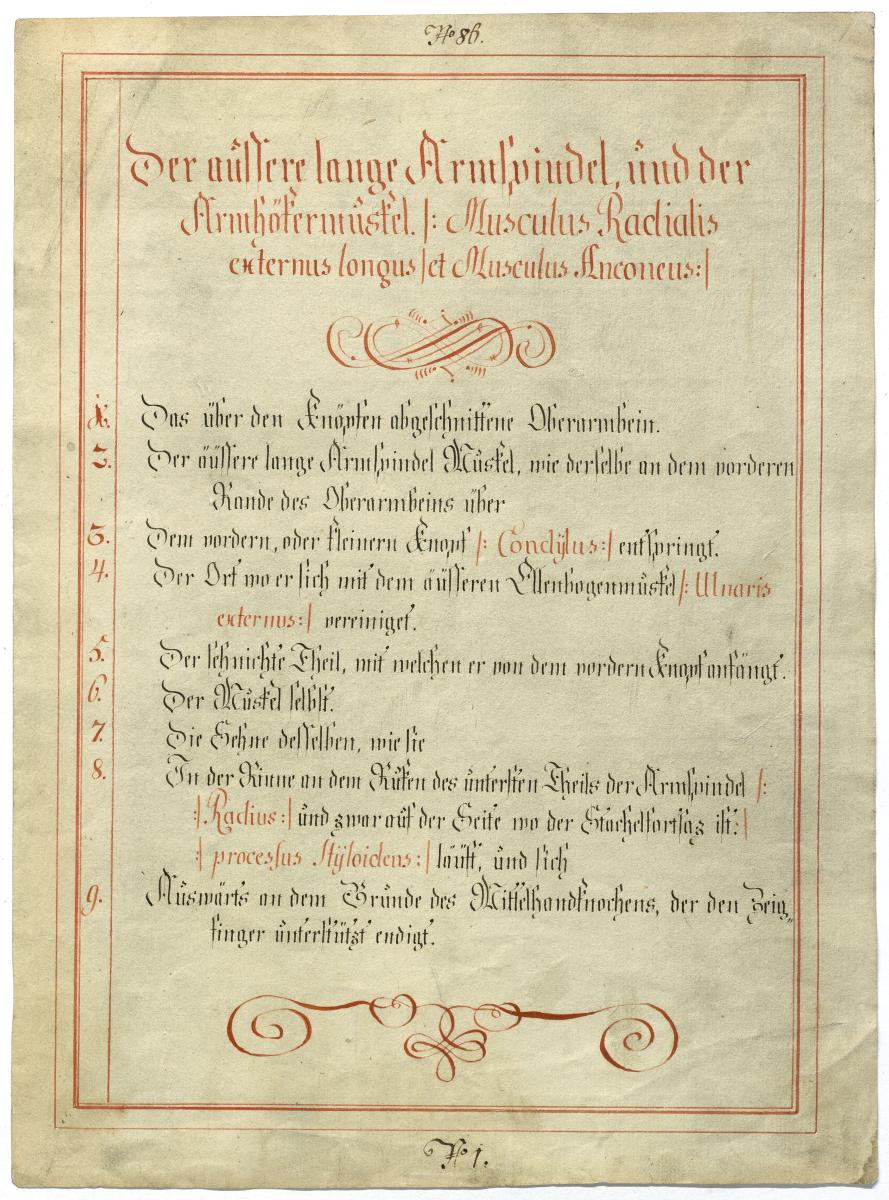 No 86.
Der äussere lange Armspindel, und der
Armhökermuskel. /: Musculus Radialis
externus longus / et Musculus Anconeus: /
1. Das über den Knöpfen abgeschnittene Oberarmbein.
2. Der äüssere lange Armspindel Muskel, wie derselbe an dem vorderen
Rande des Oberarmbeins über
3. Dem vordern, oder kleinern Knopf /: Condÿlus: / entspringt.
4. Der Ort wo er sich mit dem äüsseren Ellenbogenmuskel /: Ulnaris
externus: / vereiniget.
5. Der sehnichte Theil, mit welchen er von dem vordern Knopf anfängt.
6. Der Muskel selbst.
7. Die Sehne desselben, wie sie
8. In der Rinne an dem Rüken des untersten Theils der Armspindel /:
:/ Radius: / und zwar auf der Seite wo der Stachelfortsaz ist: /
:/ processus Stÿloideus: / läuft, und sich
9. Auswärts an dem Grunde des Mittelhandknochens, der den Zeig„
finger unterstützt endigt.
No 1.